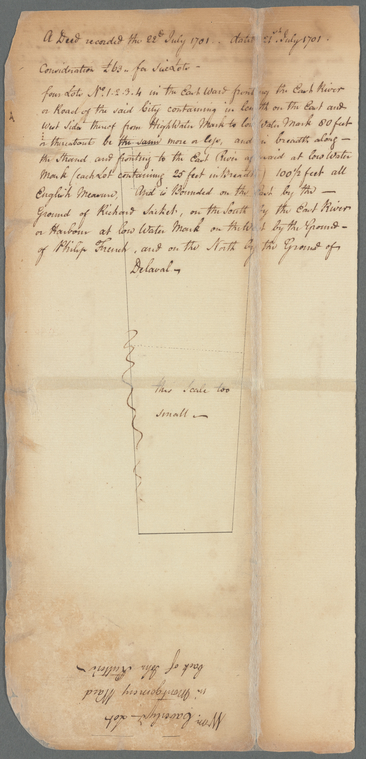 A Deed recorded the 22d July 1701. dated 21st July 1701.
Consideration £63 – for Six Lots –
four Lots No. 1. 2. 3. 4 in the East Ward fronting the East River
or Road of the said City containing in length on the East and
West Side thereof from HighWater Mark to low Water Mark 80 feet
or thereabout be the same more or less, and in breadth along
the Strand and fronting to the East River aforesaid at low Water
Mark (each Lot containing 25 feet in Breadth) 100½ feet all
English Measure, And is Bounded on the East by the –
Ground of Richard Sacket, on the South by the East River
or Harbour at low Water Mark on the West by the Ground –
of Philip French, and on the North by the Ground of
Delaval –
this Scale too
small –
Wm. Lot
in Montgomery Ward
back of